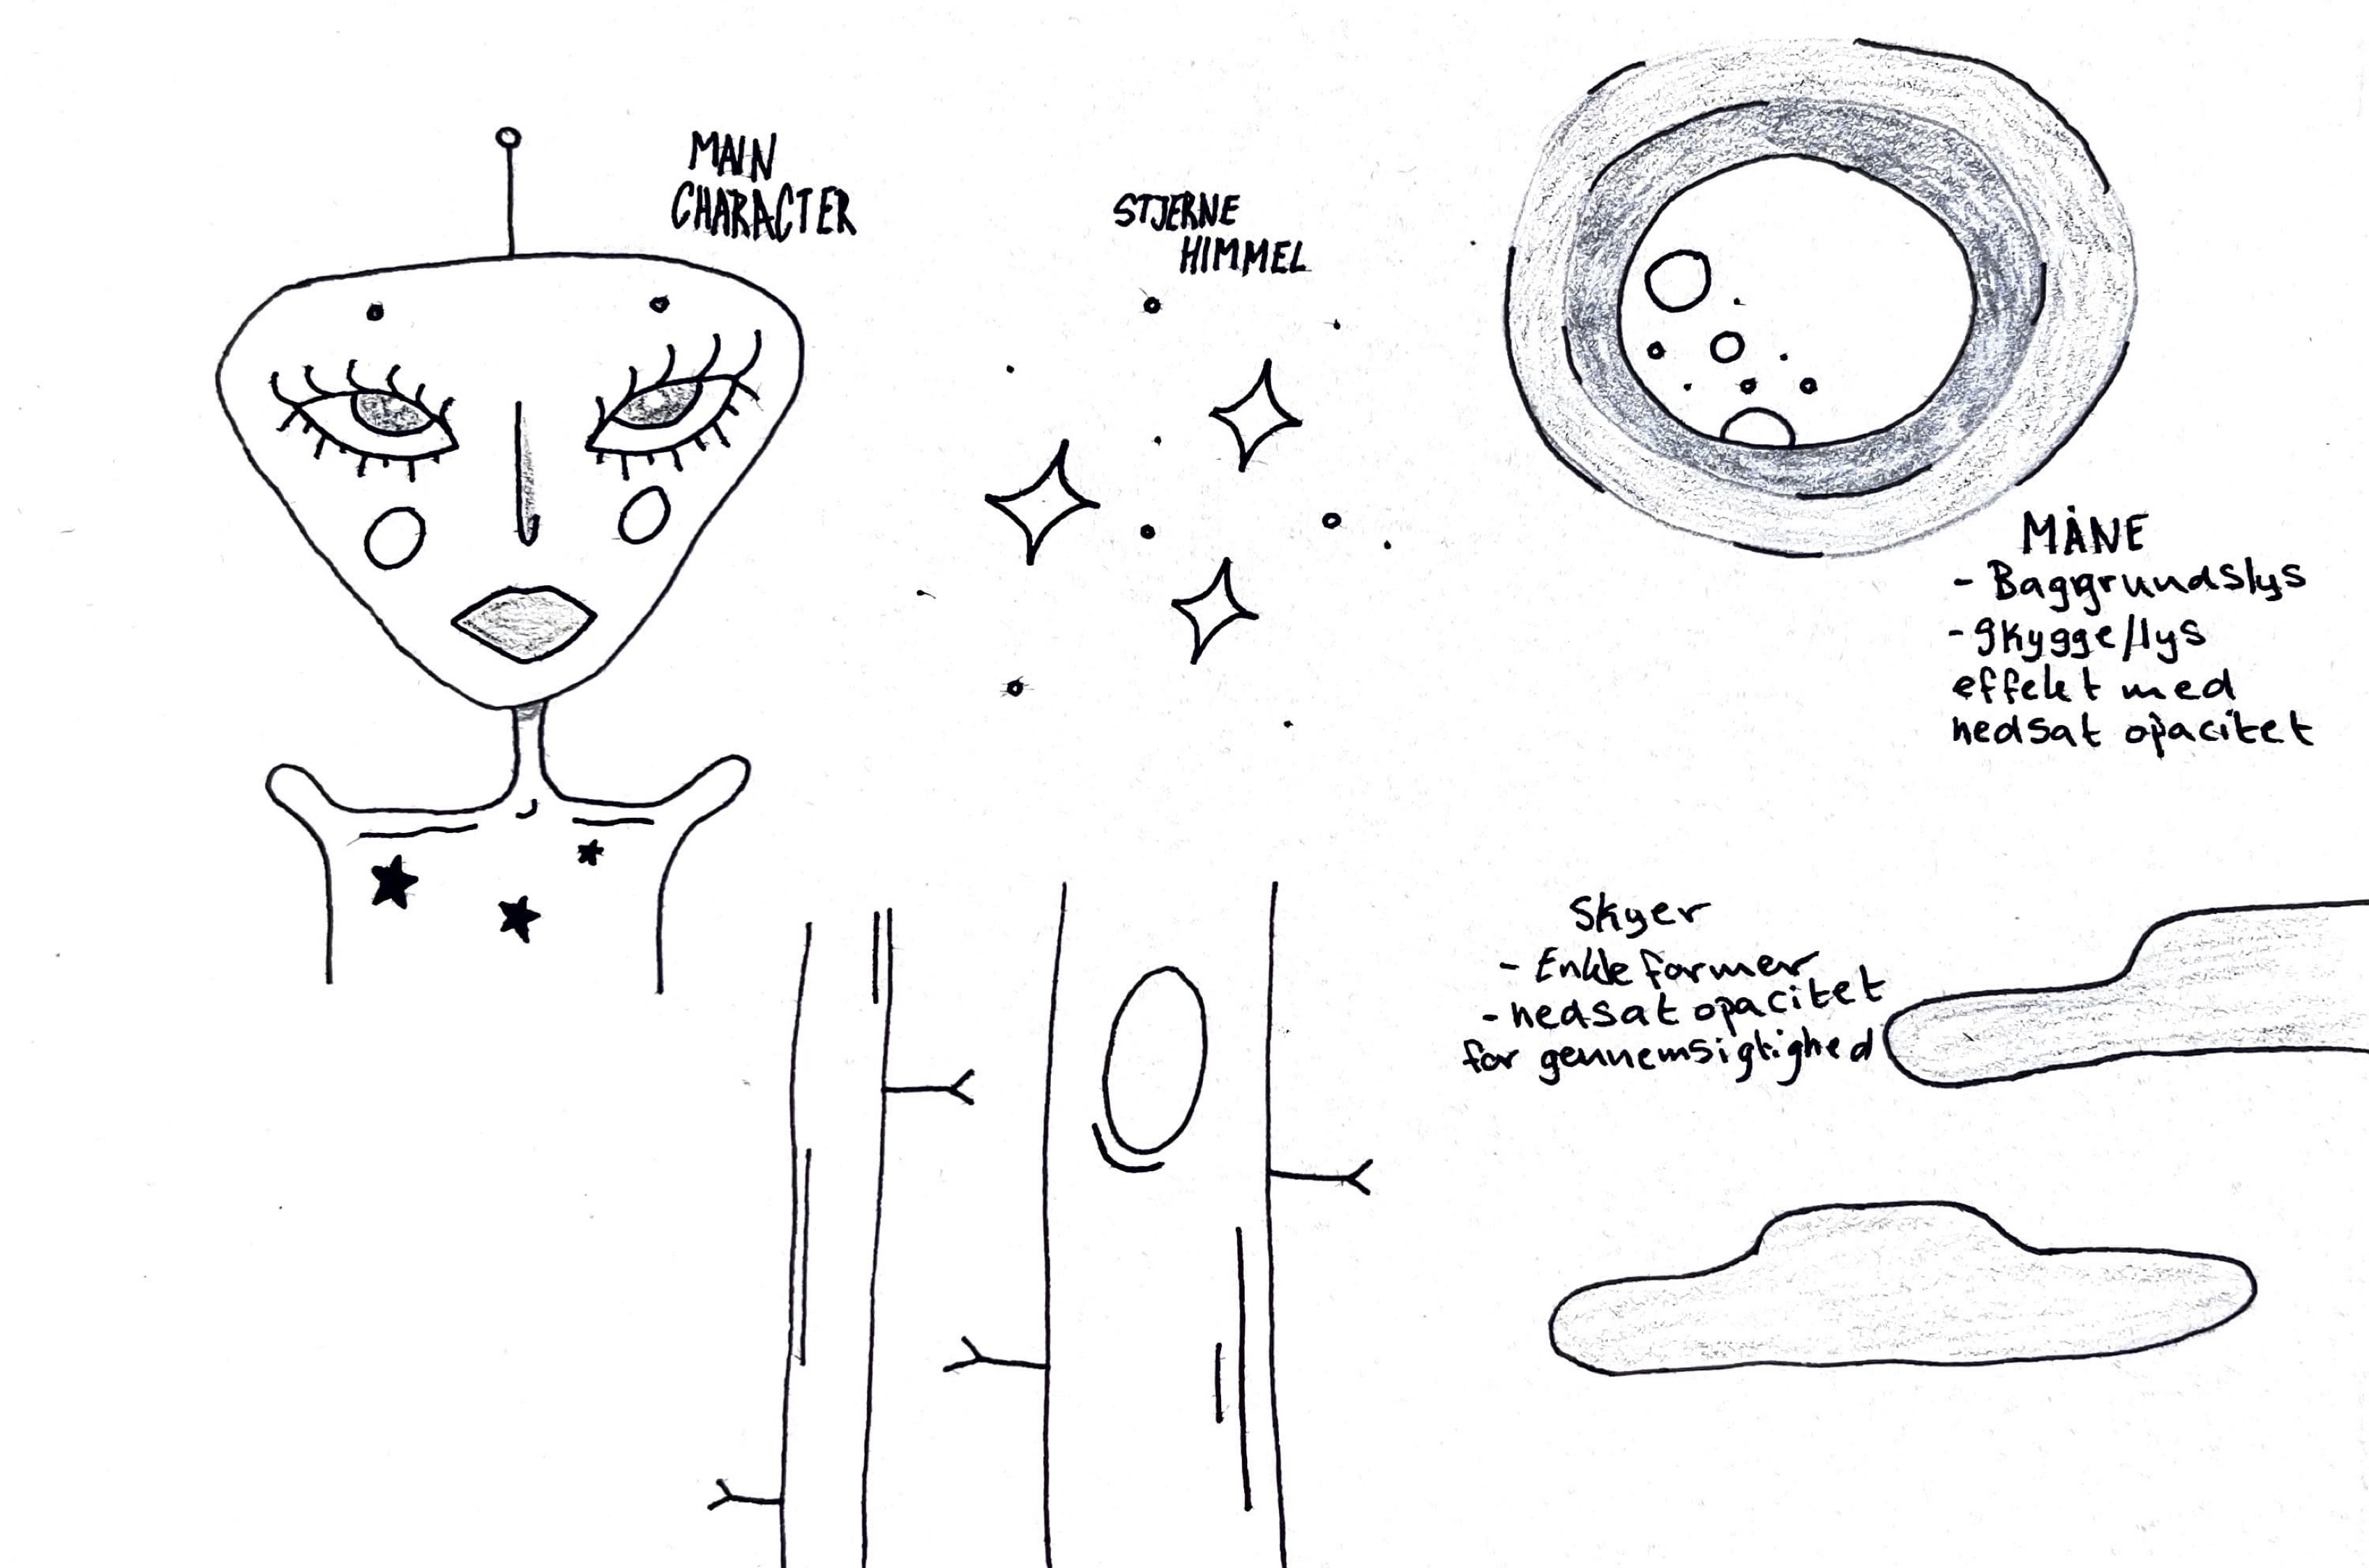 MAIN
CHARACTER
STJERNE
HIMMEL
MÅNE
- Baggrundslys
- Skygge/lys
effekt med
nedsat opacitet
Skyer
- Enkle former
- nedsat opacitet
for gennemsigtighed